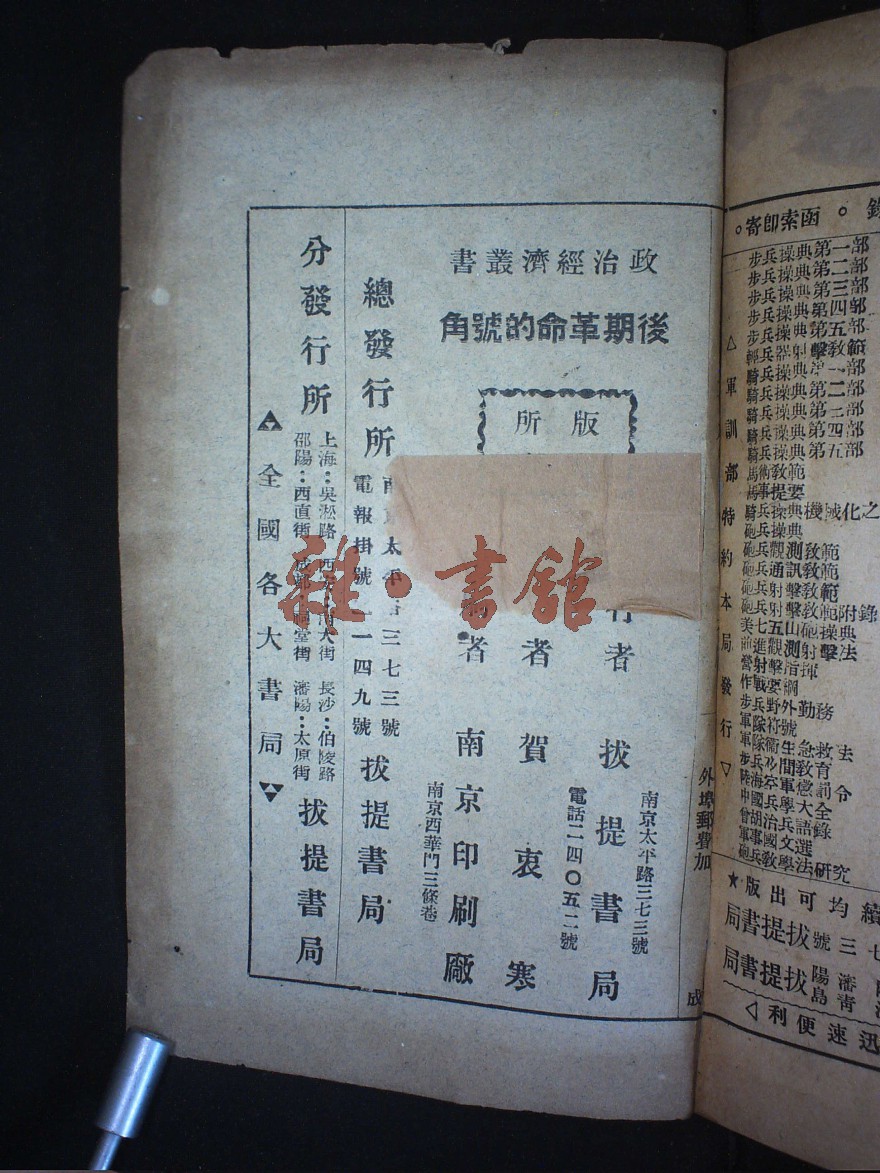 政治經濟叢書
後期革命的號角
版 所
外埠郵費加
成
行者 拔提書局
南京太平路三七三號
電話二四〇五二號
者 賀衷寒
者 南京印刷廠
南京西華門三條巷
總發行所
太平 三七三號
電報掛號 一一四九號
拔提書局
分發行所
上海：吳淞路 西安：南大街 長沙：伯陵路
邵陽：西直街 成都：祠堂街 瀋陽：太原街
拔提書局
全國各大書局
雜·書館
函索即寄。
步兵操典第一部
步兵操典第二部
步兵操典第三部
步兵操典第四部
步兵操典第五部
騎兵操典第二部
騎兵操典第四部
騎兵操典第五部
馬術教範
馬事提要
騎兵操典機械化之
砲兵操典
砲兵觀測教範
砲兵通訊教範
砲兵射擊教範
砲兵射擊教範附錄
美七五山砲操典
前進觀測射擊法
營射擊指揮
作戰要綱
步兵野外勤務
軍隊符號
軍隊衛生急救法
曾胡治兵語錄
軍事國文選
砲兵教學法研究
△軍訓部特約本局發行▽
★版出可均續
拔提書局
拔提書局
瀋陽
青島
迅速便利